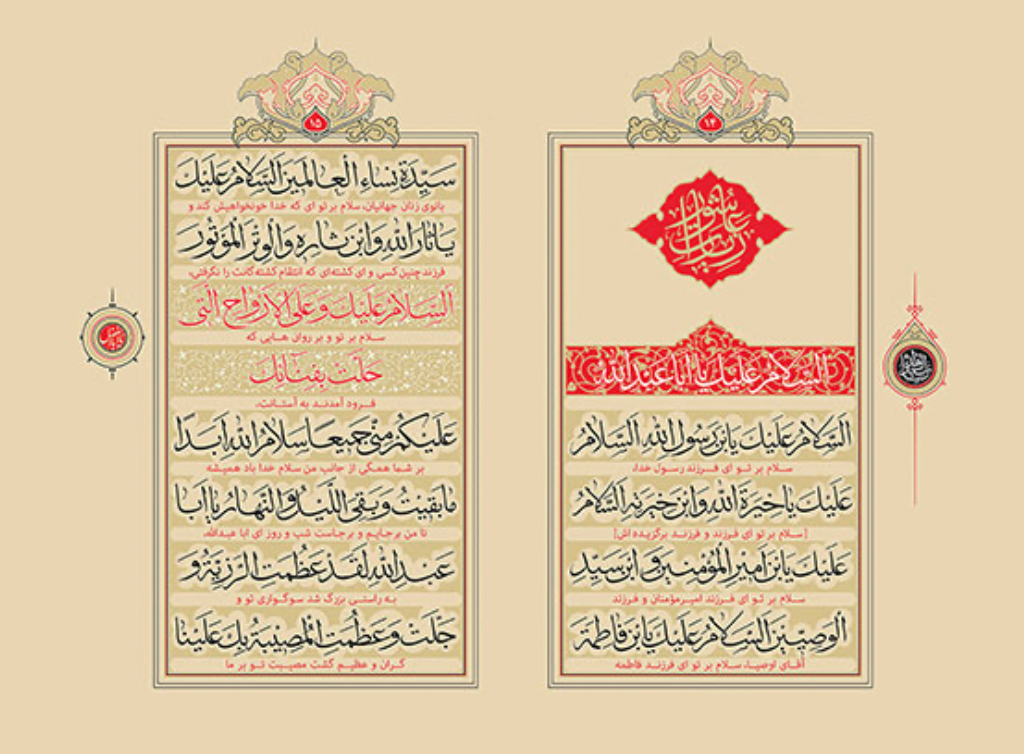 ۱۴
زیارت عاشورا
السَّلامُ عَلَیْكَ یا اَبا عَبْدِ اللهِ
اَلسَّلامُ عَلَیْكَ یَابْنَ رَسُولِ اللهِ اَلسَّلامُ
سلام بر تو ای فرزند رسول خدا،
عَلَیْكَ یا خِیَرَةَ اللهِ وَابْنَ خِیَرَتِهِ اَلسَّلامُ
[سلام بر تو ای فرزند و فرزند برگزیده‌اش]
عَلَیْكَ یَابْنَ اَمیرِ الْمُؤْمِنینَ وَ ابْنَ سَیِّدِ
سلام بر تو ای فرزند امیرمؤمنان و فرزند
الْوَصِیّینَ اَلسَّلامُ عَلَیْكَ یَابْنَ فاطِمَةَ
آقای اوصیا، سلام بر تو ای فرزند فاطمه
۱۵
سَیِّدَةِ نِساءِ الْعالَمینَ اَلسَّلامُ عَلَیْكَ
بانوی زنان جهانیان، سلام بر تو ای که خدا خونخواهیش کند و
یا ثارَ اللهِ وَابْنَ ثارِهِ وَالْوِتْرَ الْمَوْتُورَ
فرزند چنین کسی و ای کشته‌ای که انتقام کشته‌گانت را نگرفتی،
اَلسَّلامُ عَلَیْكَ وَ عَلَی الْاَرْواحِ الَّتی
سلام بر تو و بر روان هایی که
حَلَّتْ بِفِنائِكَ
فرود آمدند به آستانت،
عَلَیْکُمْ مِنّی جَمیعاً سَلامُ اللهِ اَبَداً
بر شما همگی از جانب من سلام خدا باد همیشه
ما بَقیتُ وَ بَقِیَ اللَّیْلُ وَالنَّهارُ یا اَبا
تا من برجایم و برجاست شب و روز ای ابا عبدالله،
عَبْدِ اللهِ لَقَدْ عَظُمَتِ الرَّزِیَّةُ وَ
به راستی بزرگ شد سوگواری تو و
جَلَّتْ وَ عَظُمَتِ الْمُصیبَةُ بِكَ عَلَیْنا
گران و عظیم گشت مصیبت تو بر ما